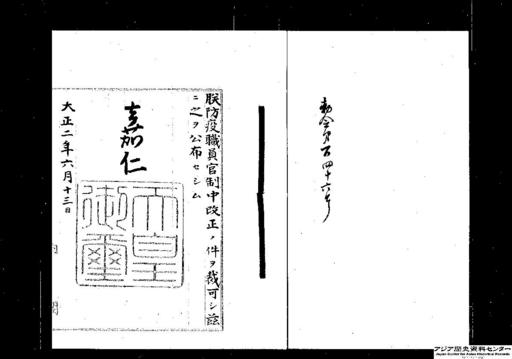 勅令第百四十六号
朕防疫職員官制中改正ノ件ヲ裁可シ茲
ニ之ヲ公布セシム
嘉仁
天皇
御璽
大正二年六月十三日
アジア歴史資料センター
Japan Center for Asian Historical Records